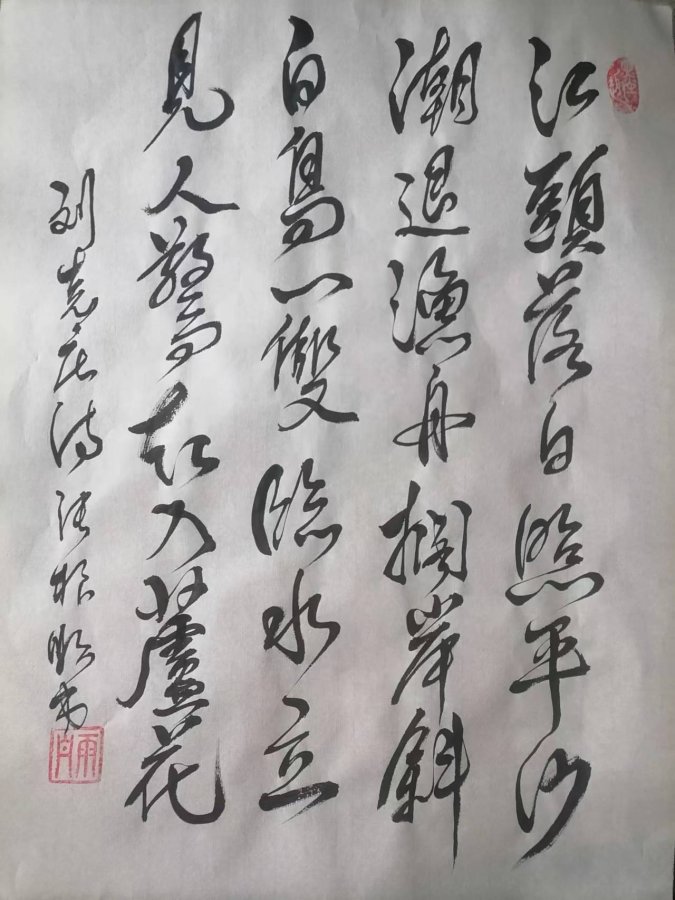 江頭落日照平沙
潮退漁舟擱岸斜
白鳥一雙臨水立
見人驚起入蘆花
劉克庄詩